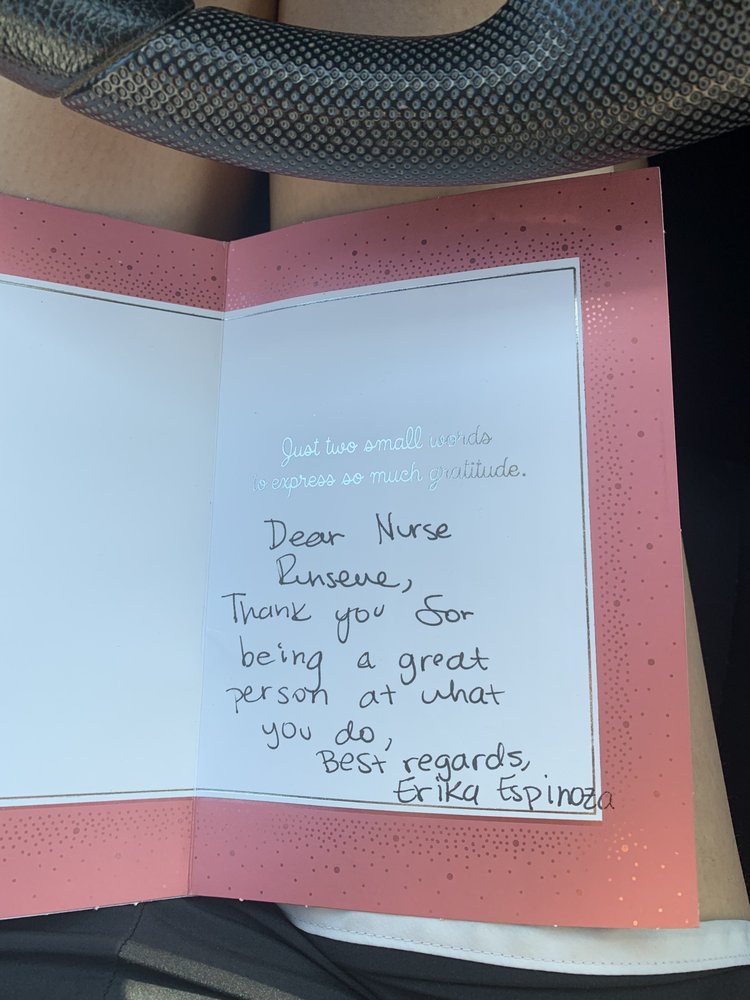 Just two small words
to express so much gratitude.
Dear Nurse
Thank you for
being a great
person at what
you do,
Best regards,
Erika Espinoza